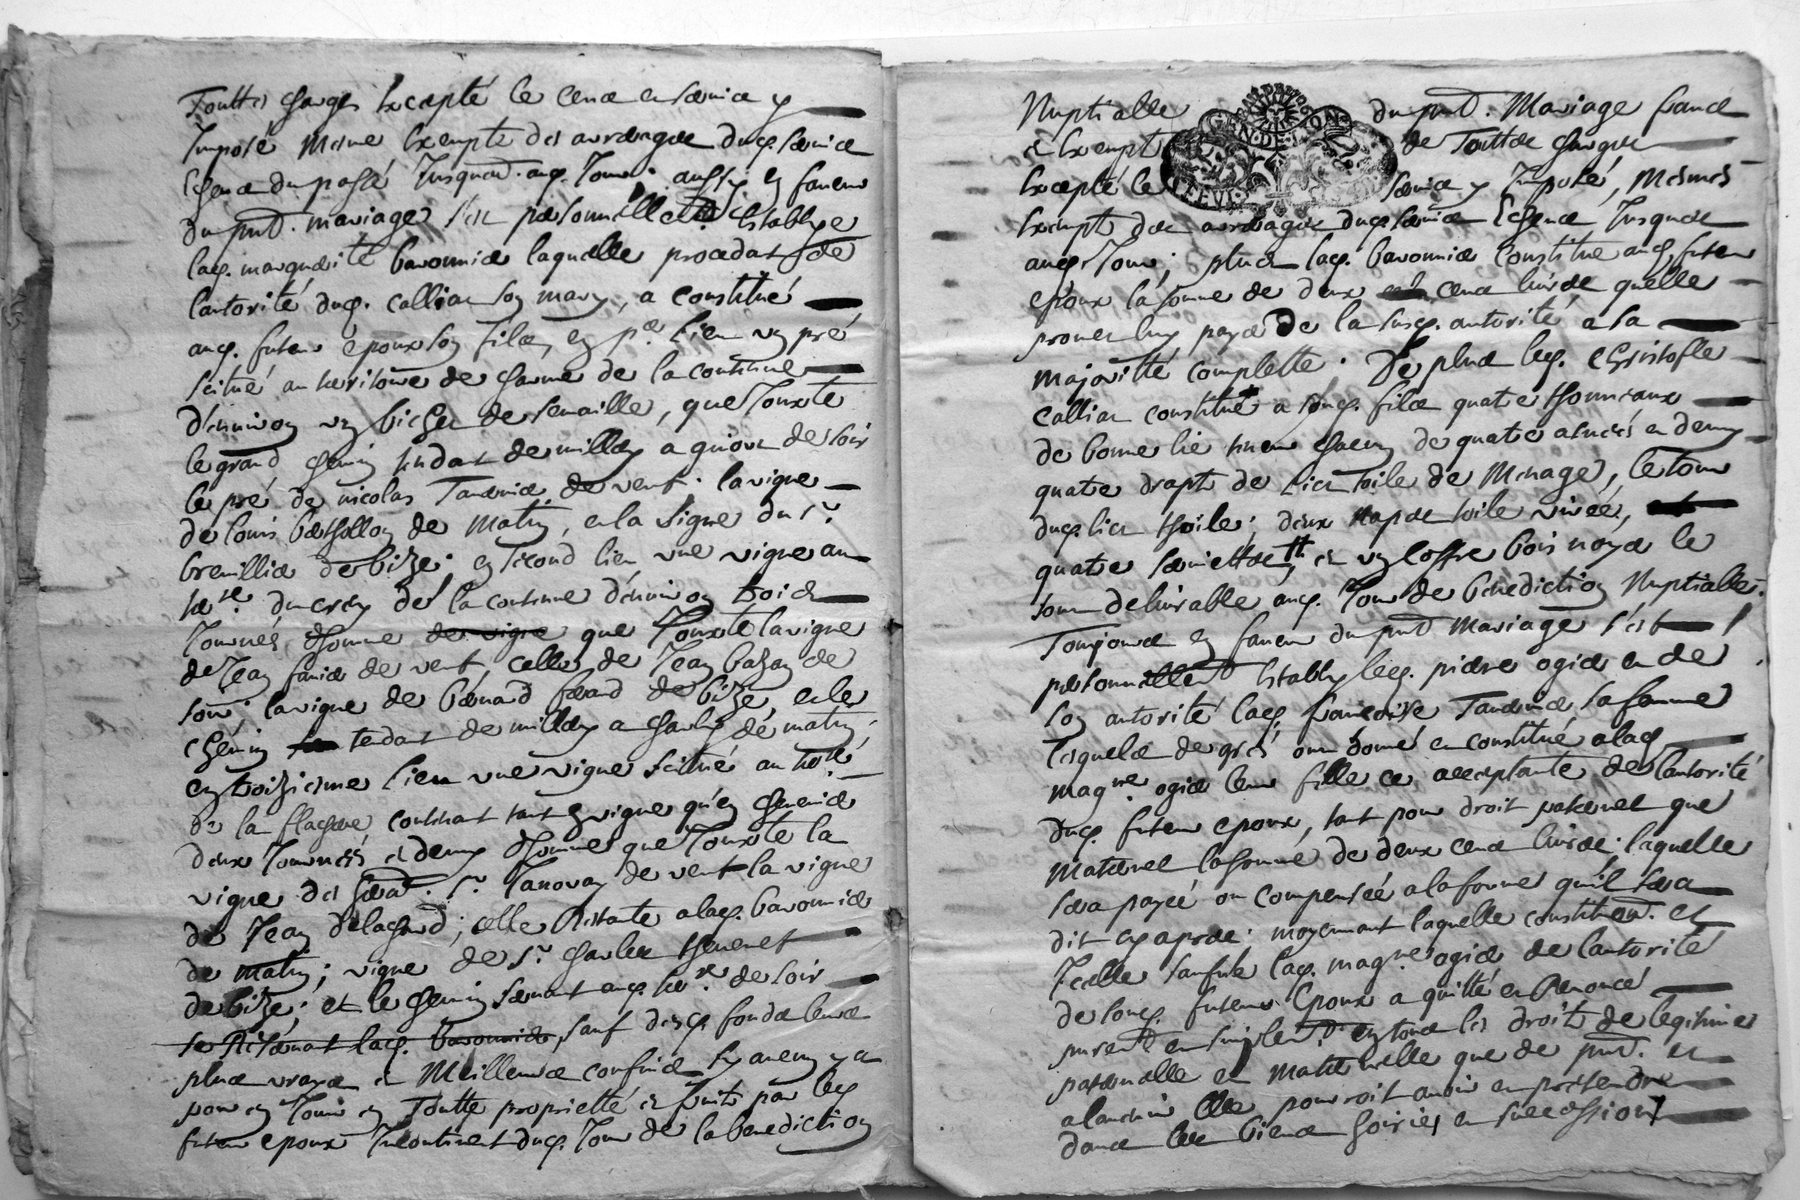 Touttes charges Excepté le cens et servis y
Imposé mesme Exempte des arrerages dud. servis
Escheus du passé Jusques. aud. Jour. aussy en faveur
du pnt. mariage s'est personnellemt Establye
lad. marguerite baronnier laquelle procedant de
lautorité dud. calliat son mary, a constitué
aud. futeur époux son fils, en pr. Lieu un pré
scitué au territoire de de la contenue
d'environ un bichet de semaille, que Jouxte
le grand chemin tendant de millery a givors de soir
le pré de nicolas Tavernier de vent. la vigne
de louis berthollon de matin, et la vigne du sr.
brevillier de bize. en second lieu une vigne au
terre. du crey de la contenue d'environ trois
Journés d'homme de vigne que Jouxte la vigne
de Jean de vent, celle de Jean bazan de
soir. la vigne de bernard ferand de bize, et le
chemin tendant de millery a charly de matin,
en troizieme lieu une vigne scitué au terre.
de la flachere contenant tant en vigne qu'en
deux Journées et demy d'homme que Jouxte la
vigne des sr. Janoray de vent la vigne
de Jean delachard; celle Restante a lad. baronnier
de matin; vigne de sr. charles thevenet
de bize; et le chemin servant aud. terre. de soir
se Réservant lad. baronnier, sauf desd. fonds leurs
plus vrays et Meilleurs confins sy aucun y a
pour en Jouir en Toutte proprietté et fruits par led.
futeur epoux Incontinent dud. Jour de la benediction
Nuptialle du pnt. Mariage franc
et Exempt de Touttes charges
Excepté le servis y Imposé, mesmes
Exempt des arrerages dud. servis Escheus Jusques
aud. Jour; plus lad. baronnier constitue aud. futeur
epoux la somme de deux cens livres quelle
promet luy payer de la susd. autorité a sa
majoritté complette. De plus led. christofle
calliat constitue a sond. fils quatre thonneaux
de bonne lie tenant chacun de quatre asnées et demy
quatre drapt de Lict toile de Menage, le tour
dud. lict thoile; deux napes toile
quatre serviettes, et un coffre bois noyer le
tout delivrable aud. Jour de benediction Nuptialle.
Toujours en faveur du pnt mariage s'est
personnellemt Estably led. pierre ogier et de
son autorité lad. francoise Tavernier sa femme
lesquels de grés ont donné et constitué a lad.
magne. ogier leur fille ce acceptante de lautorité
dud. futeur epoux, tant pour droit paternel que
maternel la somme de deux cens livres; laquelle
sera payée ou compensée a la forme qu'il sera
dit cy apres; moyennant laquelle constituon. et
Icelle saufve lad. magne. ogier de lautorité
de sond. futeur Epoux a quitté et Renoncé
puremt et simplemt. en tous les droits de legitimes
paternelle et maternelle que de pnt. et
a lavenir Elle pourroit avoir et pretendre
dans les biens hoiries et succession